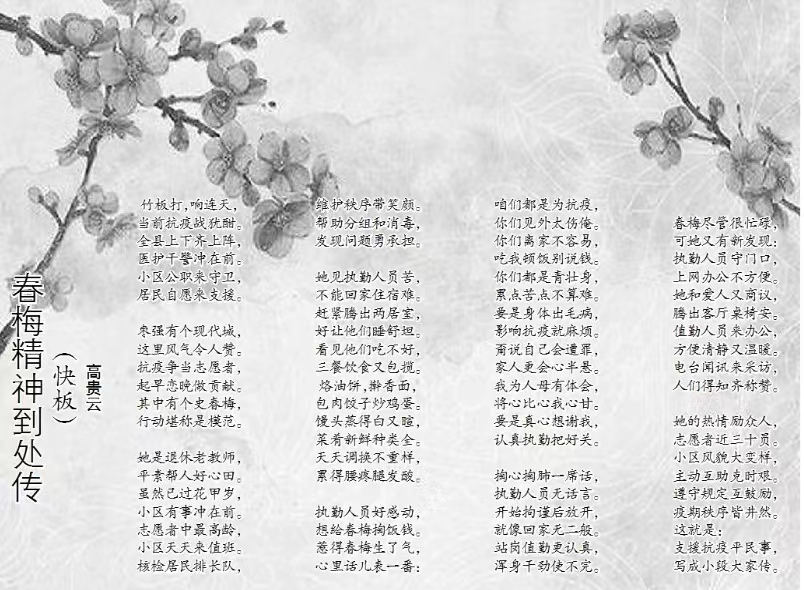 春梅精神到处传
(快板)
高贵云
竹板打,响连天,
当前抗疫战犹酣。
全县上下齐上阵,
医护干警冲在前。
小区公职来守卫,
居民自愿来支援。
枣强有个现代城,
这里风气令人赞。
抗疫争当志愿者,
起早恋晚做贡献。
其中有个史春梅,
行动堪称是模范。
她是退休老教师,
平素帮人好心田。
虽然已过花甲岁,
小区有事冲在前。
志愿者中最高龄,
小区天天来值班。
核检居民排长队,
维护秩序带笑颜。
帮助分组和消毒,
发现问题勇承担。
她见执勤人员苦,
不能回家住宿难。
赶紧腾出两居室,
好让他们睡舒坦。
看见他们吃不好,
三餐饮食又包揽。
烙油饼,擀香面,
包肉饺子炒鸡蛋。
馒头蒸得白又暄,
菜肴新鲜种类全。
天天调换不重样,
累得腰疼腿发酸。
执勤人员好感动,
想给春梅掏饭钱。
惹得春梅生了气,
心里话儿表一番:
咱们都是为抗疫,
你们见外太伤俺。
你们离家不容易,
吃我顿饭别说钱。
你们都是青壮身,
累点苦点不算难。
要是身体出毛病,
影响抗疫就麻烦。
甭说自己会遭罪,
家人更会心半悬。
我为人母有体会,
将心比心我心甘。
要是真心想谢我,
认真执勤把好关。
掏心掏肺一席话,
执勤人员无话言。
开始拘谨后放开,
就像回家无二般。
站岗值勤更认真,
浑身干劲使不完。
春梅尽管很忙碌,
可她又有新发现:
执勤人员守门口,
上网办公不方便。
她和爱人又商议,
腾出客厅桌椅安。
值勤人员来办公,
方便清静又温暖。
电台闻讯来采访,
人们得知齐称赞。
她的热情励众人,
志愿者近三十员。
小区风貌大变样,
主动互助克时艰。
遵守规定互鼓励,
疫期秩序皆井然。
这就是:
支援抗疫平民事,
写成小段大家传。